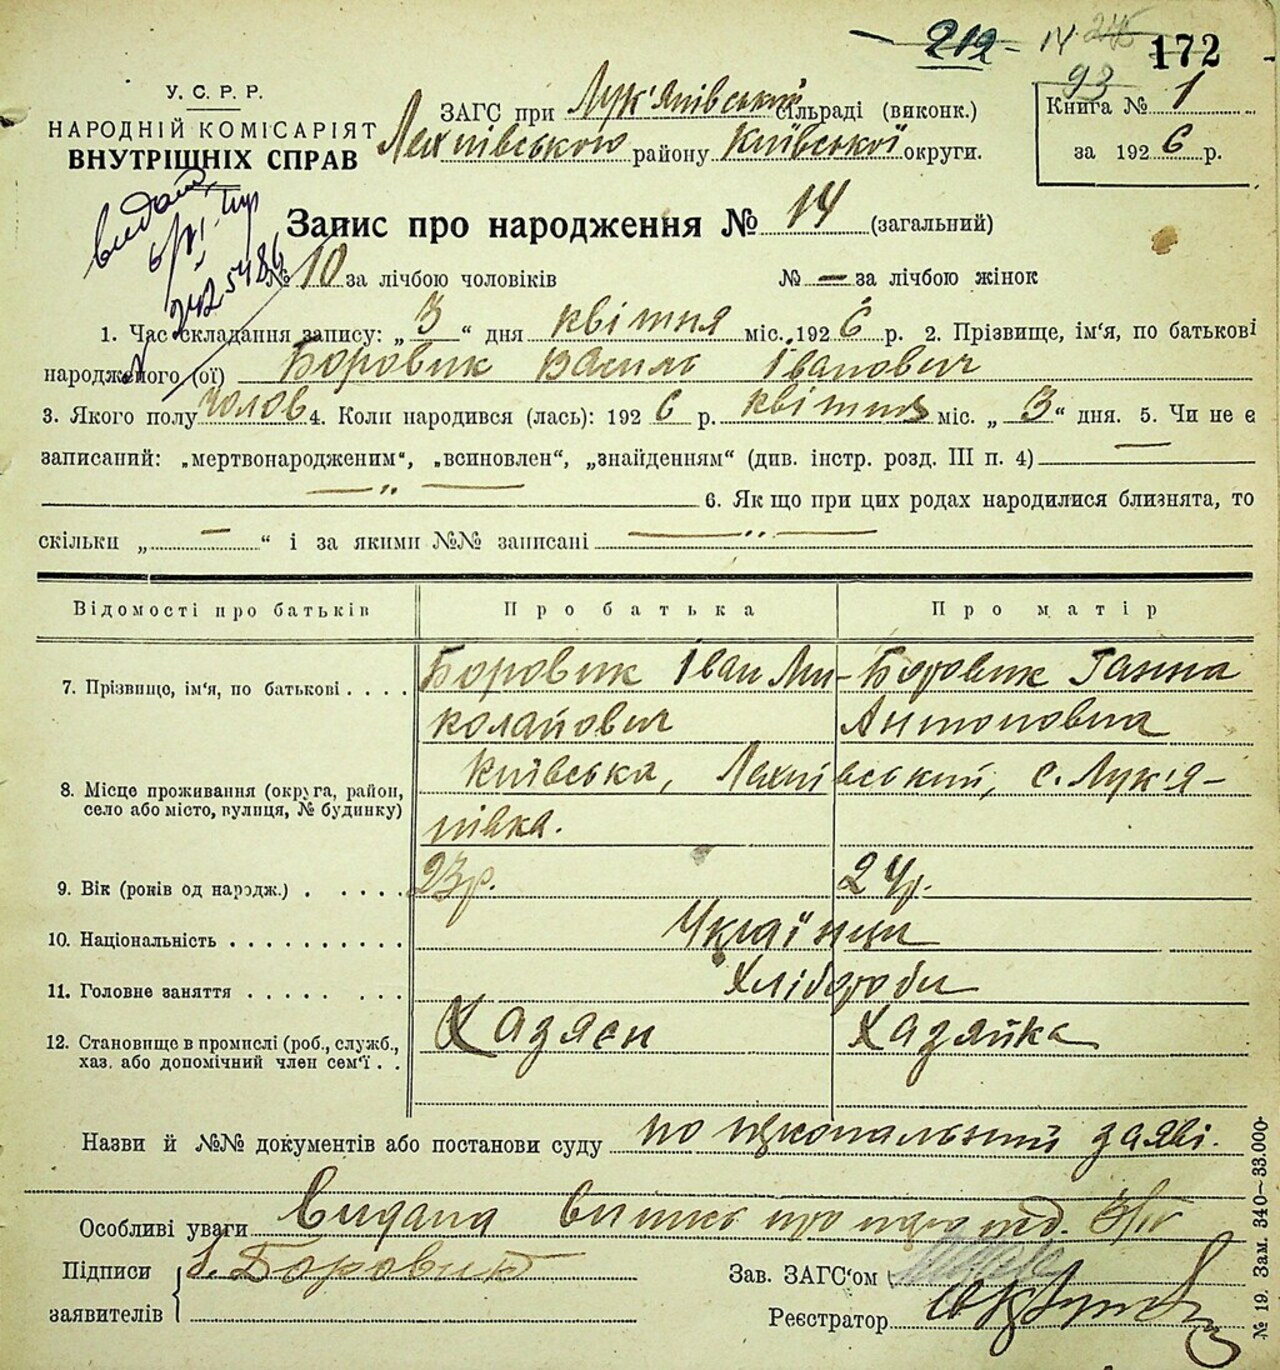 212 - 14 172
93
У. С. Р. Р.
НАРОДНІЙ КОМІСАРІЯТ
ВНУТРІШНІХ СПРАВ
ЗАГС при Лук'янівський сільраді (виконк.)
Лехнівського району Київської округи.
Книга № 1
за 1926 р.
Запис про народження № 14 (загальний)
№ 10 за лічбою чоловіків № — за лічбою жінок
1. Час складання запису: „3“ дня квітня міс. 1926 р. 2. Прізвище, ім'я, по батькові
народженого (ої) Боровик Василь Іванович
3. Якого полу чолов 4. Коли народився (лась): 1926 р. квітня міс. „3“ дня. 5. Чи не є
записаний: „мертвонародженим“, „всиновлен“, „знайденням“ (див. інстр. розд. III п. 4) —
— „ — 6. Як що при цих родах народилися близнята, то
скільки „ — “ і за якими №№ записані — „ —
Відомості про батьків Про батька Про матір
7. Прізвище, ім'я, по батькові . . . . Боровик Іван Ми- Боровик Ганна
колайович Антоновна
8. Місце проживання (округа, район, Київська, Лехнівський, с. Лук'я-
село або місто, вулиця, № будинку) нівка.
9. Вік (років од народж.) . . . . . 23р. 24р.
10. Національність . . . . . . . . . . Українци
11. Головне заняття . . . . . . . . Хлібороби
12. Становище в промислі (роб., служб., Хазяєн Хазяйка
хаз. або допомічний член сем'ї . .
Назви й №№ документів або постанови суду по заяві.
Особливі уваги Видана
Підписи
заявителів
І. Боровик
Зав. ЗАГС'ом
Реєстратор
№ 19. Зам. 340—33.000